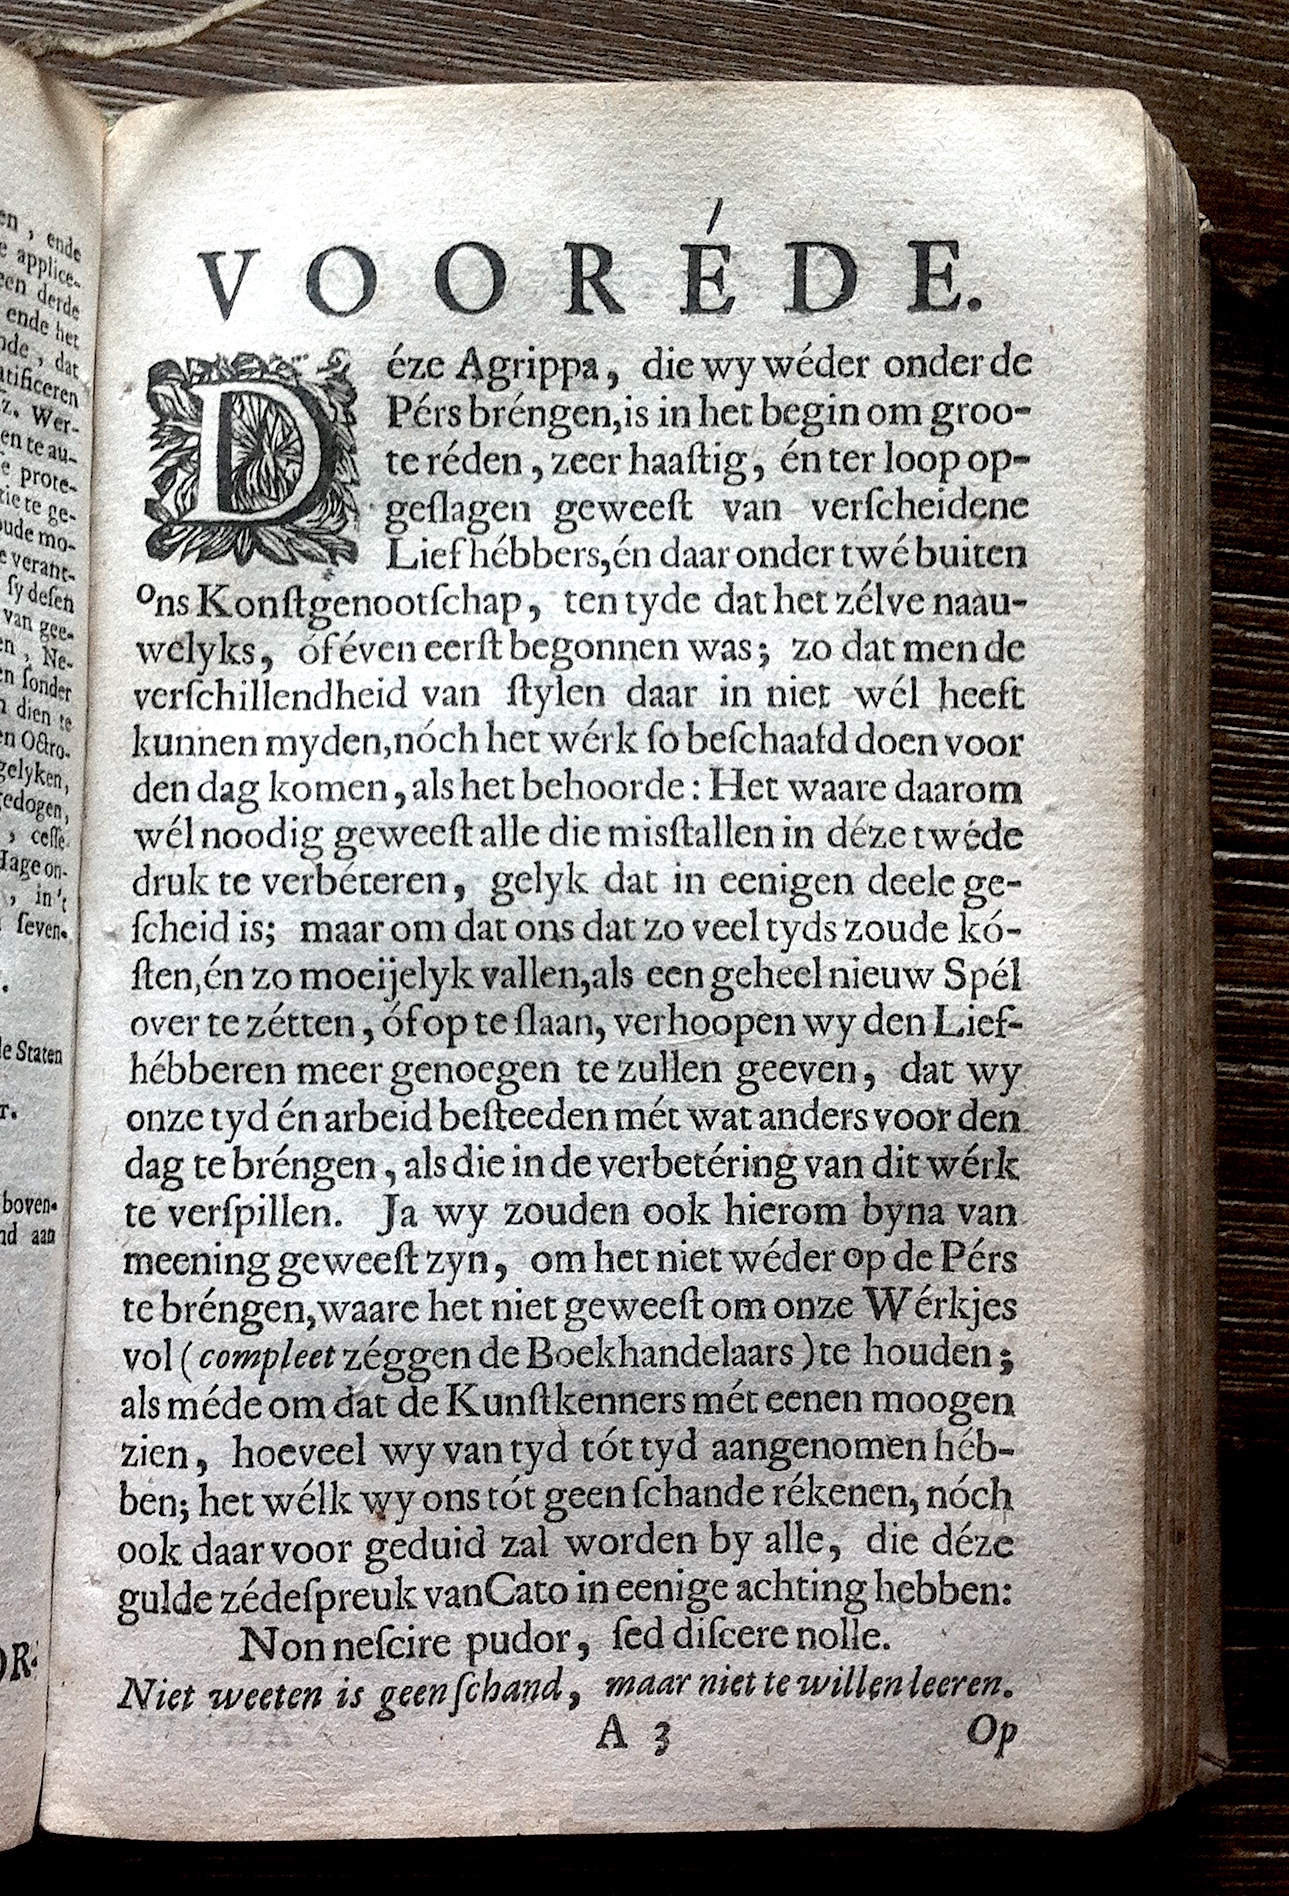 en, ende
e applice-
een derde
ende het
nde, dat
atificeren
z. Wer-
en te au-
e prote-
tie te ge-
oude mo-
e verant-
ſy deſen
van gee-
en, Ne-
en ſonder
n dien te
en Octro-
gelyken,
gedogen,
, ceſſe-
Hage on-
, in 't
ſeven-
de Staten
r.
boven-
nd aan
OR-
VOORÉDE.
Déze Agrippa, die wy wéder onder de
Pérs bréngen, is in het begin om groo-
te réden, zeer haaſtig, én ter loop op-
geſlagen geweeſt van verſcheidene
Liefhébbers, én daar onder twé buiten
ons Konſtgenootſchap, ten tyde dat het zélve naau-
welyks, óf éven eerſt begonnen was; zo dat men de
verſchillendheid van ſtylen daar in niet wél heeft
kunnen myden, nóch het wérk ſo beſchaafd doen voor
den dag komen, als het behoorde: Het waare daarom
wél noodig geweeſt alle die misſtallen in déze twéde
druk te verbéteren, gelyk dat in eenigen deele ge-
ſcheid is; maar om dat ons dat zo veel tyds zoude kó-
ſten, én zo moeijelyk vallen, als een geheel nieuw Spél
over te zétten, óf op te ſlaan, verhoopen wy den Lief-
hébberen meer genoegen te zullen geeven, dat wy
onze tyd én arbeid beſteeden mét wat anders voor den
dag te bréngen, als die in de verbetéring van dit wérk
te verſpillen. Ja wy zouden ook hierom byna van
meening geweeſt zyn, om het niet wéder op de Pérs
te bréngen, waare het niet geweeſt om onze Wérkjes
vol (compleet zéggen de Boekhandelaars) te houden;
als méde om dat de Kunſtkenners mét eenen moogen
zien, hoeveel wy van tyd tót tyd aangenomen héb-
ben; het wélk wy ons tót geen ſchande rékenen, nóch
ook daar voor geduid zal worden by alle, die déze
gulde zédeſpreuk van Cato in eenige achting hebben:
Non neſcire pudor, ſed diſcere nolle.
Niet weeten is geen ſchand, maar niet te willen leeren.
A 3 Op